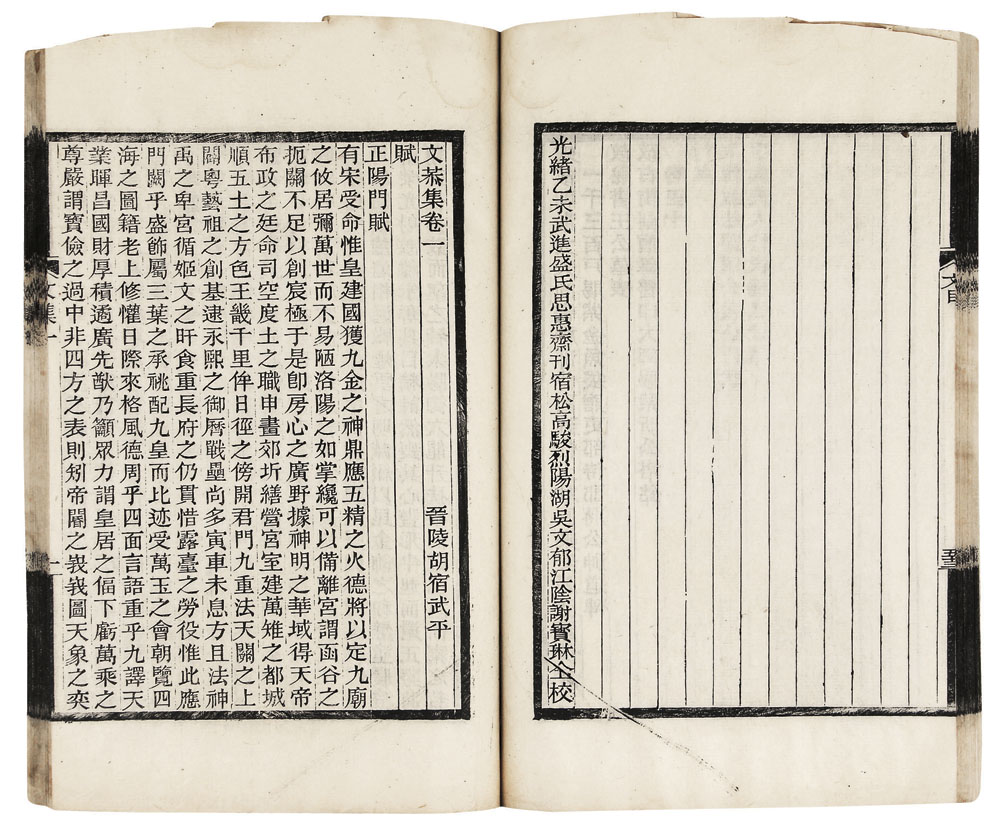 文目
光緒乙未武進盛氏思惠齋刊宿松高駿烈陽湖吳文郁江陰謝寶琳仝校
文恭集卷一　晉陵胡宿武平
賦
正陽門賦
有宋受命惟皇建國獲九金之神鼎應五精之火德將以定九廟
之攸居彌萬世而不易陋洛陽之如掌纔可以備離宮謂函谷之
扼關不足以創宸極于是卽房心之廣野據神明之華域得天帝
布政之廷命司空度土之職申畫郊圻繕營宮室建萬雉之都城
順五土之方色王畿千里侔日徑之傍開君門九重法天關之上
闢粵藝祖之創基逮永熙之御厯戰壘尚多寅車未息方且法神
禹之卑宮循姬文之旰食重長府之仍貫惜露臺之勞役惟此應
門闕乎盛飾屬三葉之承祧配九皇而比迹受萬玉之會朝覽四
海之圖籍老上修懽日際來格風德周乎四面言語重乎九譯天
業暉昌國財厚積遹廣先猷乃籲眾力謂皇居之偪下虧萬乘之
尊嚴謂寶儉之過中非四方之表則矧帝閽之峩峩圖天象之奕
文集一　一